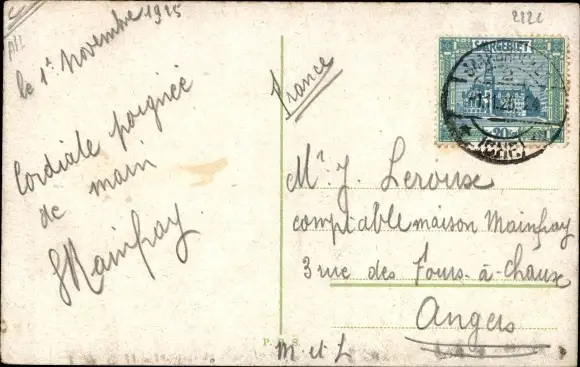 le 1er Novembre 1925
Cordiale poignée
de main
Mainfray
France
2221
SAARGEBIET
30
Mr J. Leroux
comptable maison Mainfray
3 rue des Fours-à-Chaux
Angers
M et L
P. S.